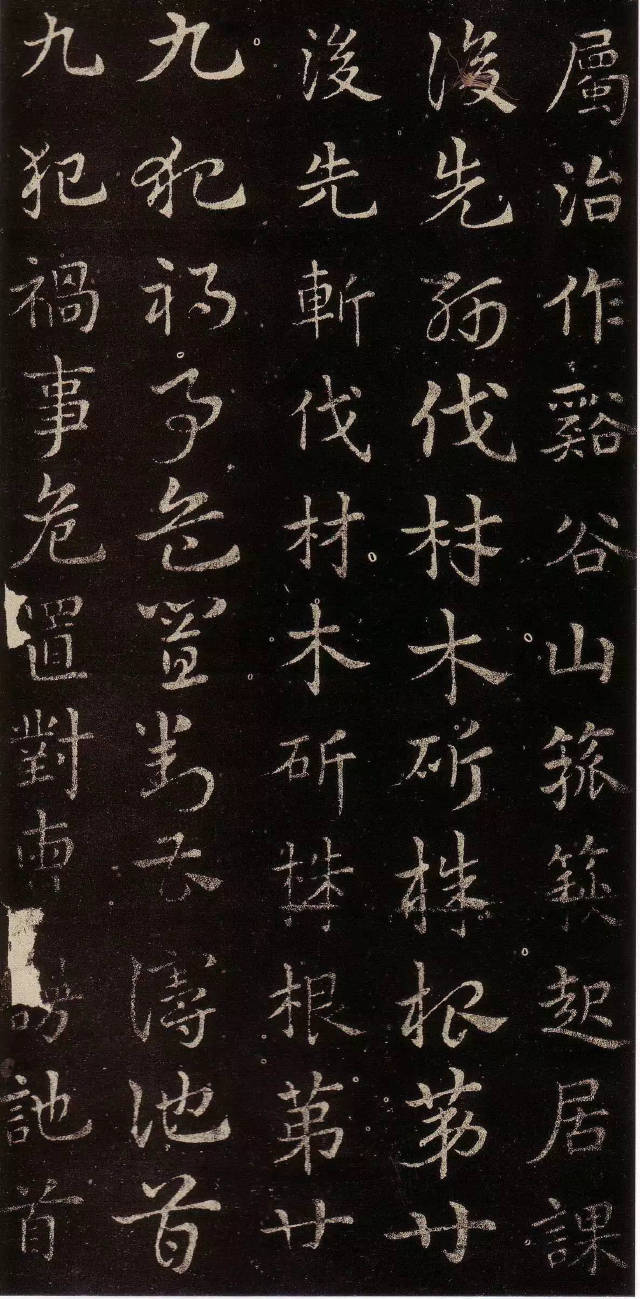 屬治作谿谷山箛篍起居課
後先斬伐材木斫株根第廿
後先斬伐材木斫株根第廿
九犯禍事危置對曹池首
九犯禍事危置對曹訑首